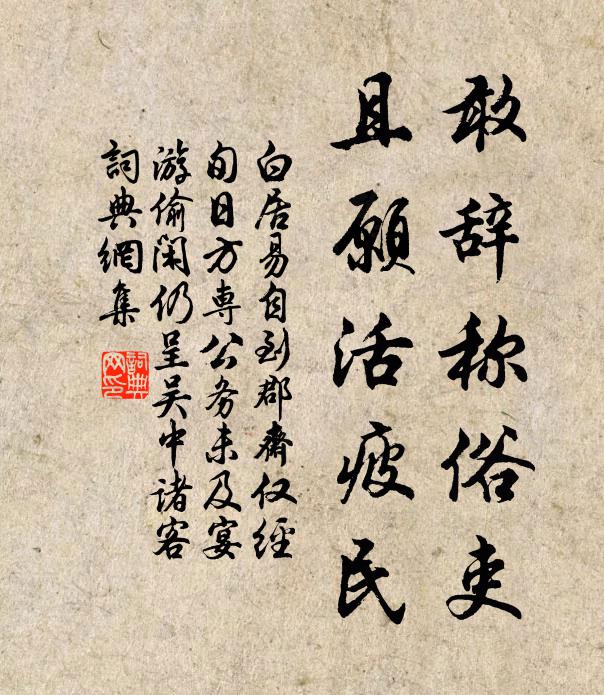 敢辞称俗吏
且愿活疲民
白居易自到郡齋仅經
旬日方専公务未及宴
游偷闲仍呈吴中诸客
詞典網集
詞典网印